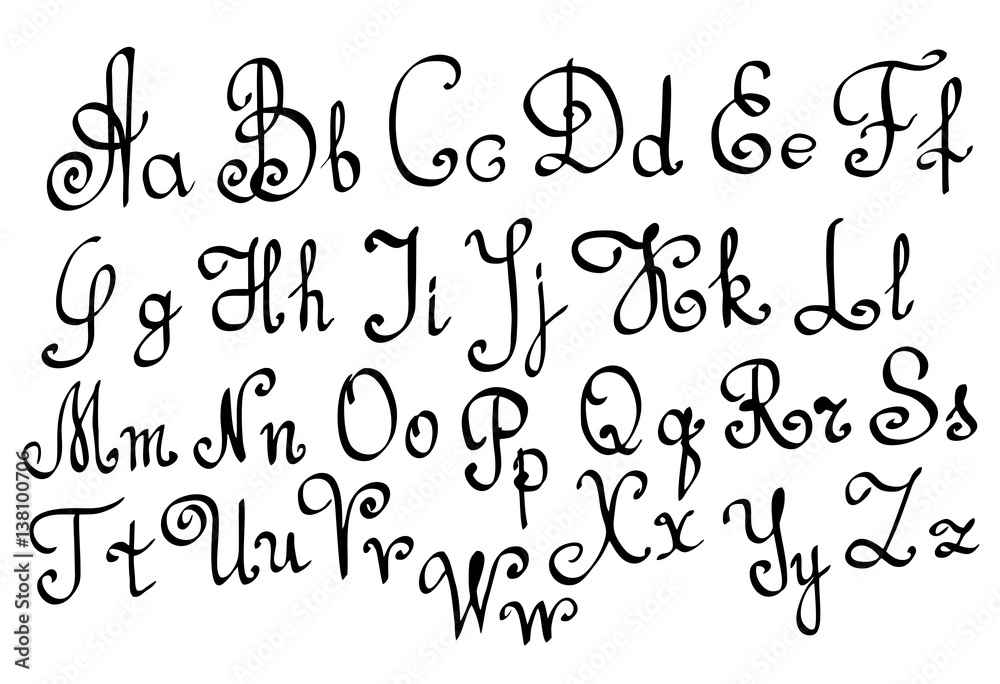 Aa Bb Cc Dd Ee Ff
Gg Hh Ii Jj Kk Ll
Mm Nn Oo Pp Qq Rr Ss
Tt Uu Vv Ww Xx Yy Zz
Adobe Stock | #138100706